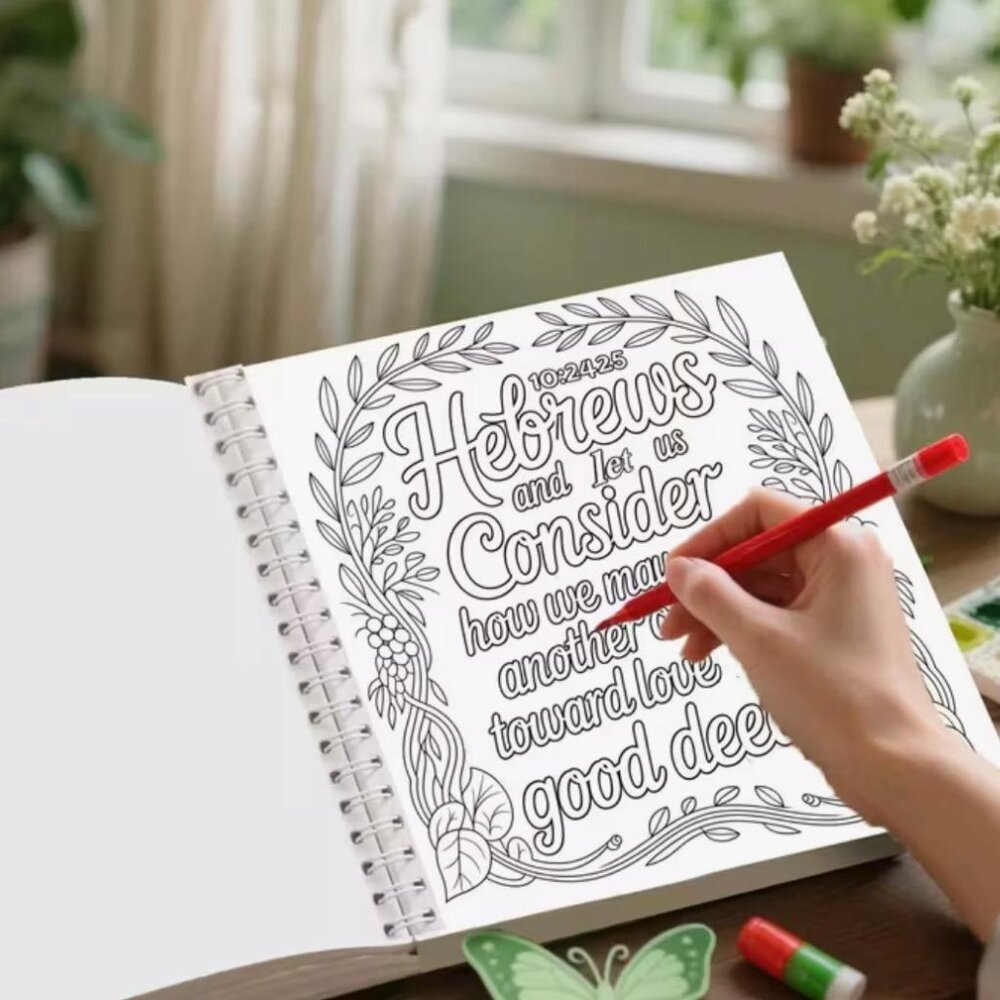 10:24-25
Hebrews
and let us
Consider
how we may
another
toward love
good